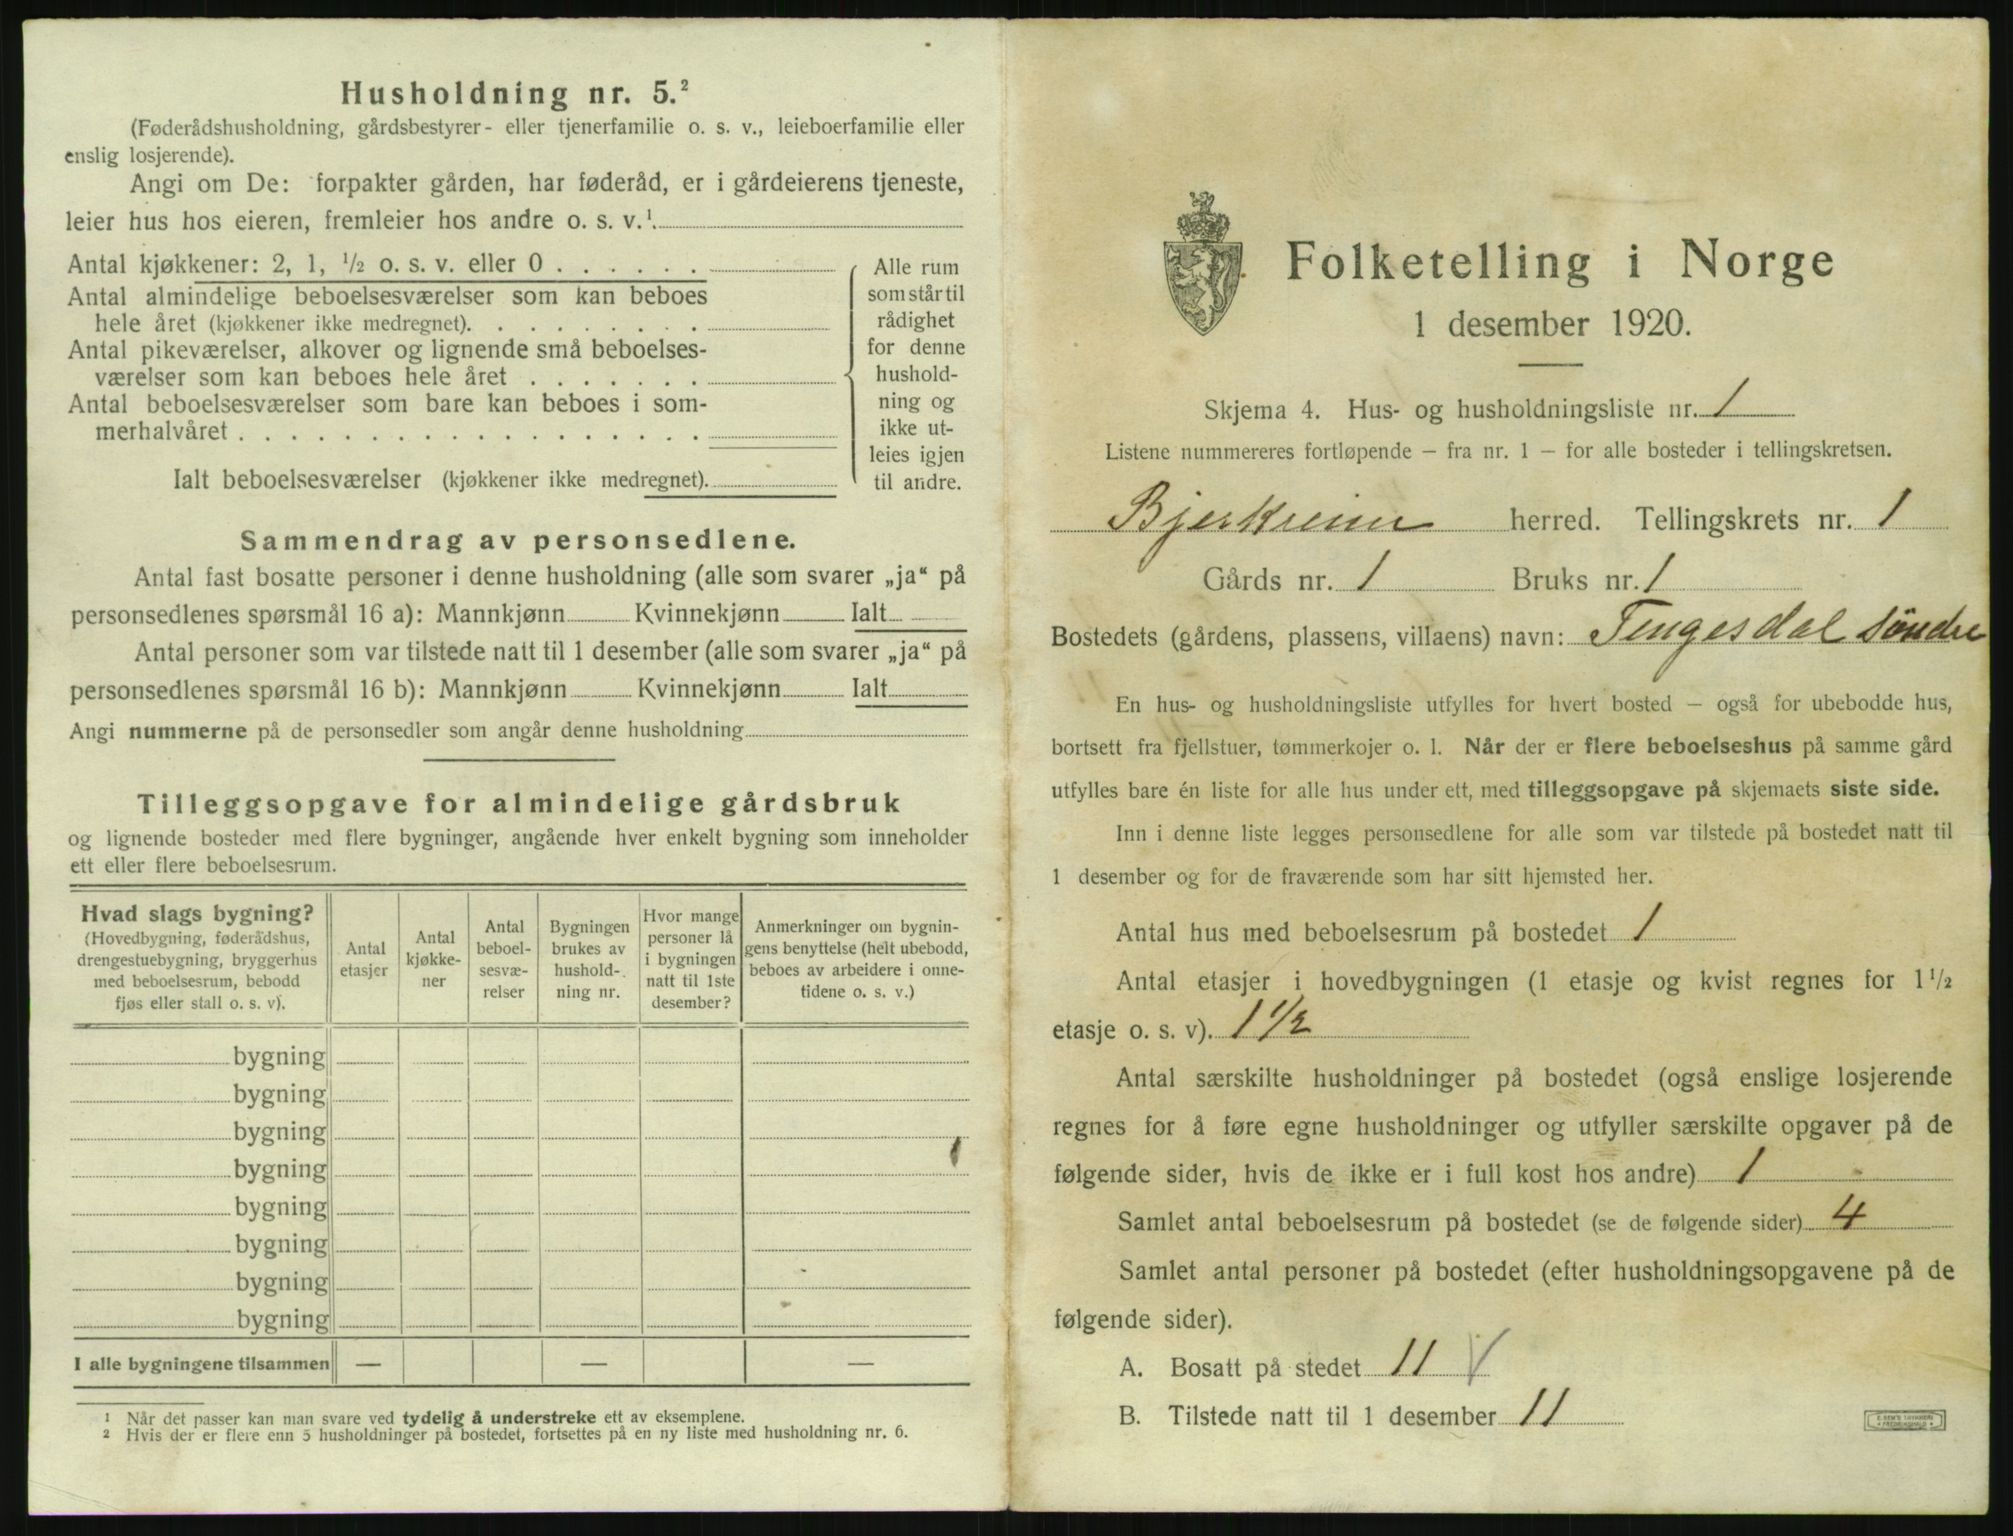 Husholdning nr. 5.²
(Føderådshusholdning, gårdsbestyrer- eller tjenerfamilie o. s. v., leieboerfamilie eller
enslig losjerende).
Angi om De: forpakter gården, har føderåd, er i gårdeierens tjeneste,
leier hus hos eieren, fremleier hos andre o. s. v.¹
Antal kjøkkener: 2, 1, ½ o. s. v. eller 0 . . . . . .
Antal almindelige beboelsesværelser som kan beboes
hele året (kjøkkener ikke medregnet). . . . . . . . .
Antal pikeværelser, alkover og lignende små beboelses-
værelser som kan beboes hele året . . . . . . .
Antal beboelsesværelser som bare kan beboes i som-
merhalvåret . . . . . . . . . . . . . . . . . .
Ialt beboelsesværelser (kjøkkener ikke medregnet).
Alle rum
som står til
rådighet
for denne
hushold-
ning og
ikke ut-
leies igjen
til andre.
Sammendrag av personsedlene.
Antal fast bosatte personer i denne husholdning (alle som svarer „ja“ på
personsedlenes spørsmål 16 a): Mannkjønn Kvinnekjønn Ialt
Antal personer som var tilstede natt til 1 desember (alle som svarer „ja“ på
personsedlenes spørsmål 16 b): Mannkjønn Kvinnekjønn Ialt
Angi nummerne på de personsedler som angår denne husholdning
Tilleggsopgave for almindelige gårdsbruk
og lignende bosteder med flere bygninger, angående hver enkelt bygning som inneholder
ett eller flere beboelsesrum.
Hvad slags bygning?
(Hovedbygning, føderådshus,
drengestuebygning, bryggerhus
med beboelsesrum, bebodd
fjøs eller stall o. s. v).
Antal
etasjer
Antal
kjøkke-
ner
Antal
beboel-
sesvæ-
relser
Bygningen
brukes av
hushold-
ning nr.
Hvor mange
personer lå
i bygningen
natt til 1ste
desember?
Anmerkninger om bygnin-
gens benyttelse (helt ubebodd,
beboes av arbeidere i onne-
tidene o. s. v.)
bygning
bygning
bygning
bygning
bygning
bygning
bygning
bygning
I alle bygningene tilsammen — — —
¹ Når det passer kan man svare ved tydelig å understreke ett av eksemplene.
² Hvis der er flere enn 5 husholdninger på bostedet, fortsettes på en ny liste med husholdning nr. 6.
Folketelling i Norge
1 desember 1920.
Skjema 4. Hus- og husholdningsliste nr. 1
Listene nummereres fortløpende – fra nr. 1 – for alle bosteder i tellingskretsen.
Bjerkreim herred. Tellingskrets nr. 1
Gårds nr. 1 Bruks nr. 1
Bostedets (gårdens, plassens, villaens) navn: Tengesdal søndre
En hus- og husholdningsliste utfylles for hvert bosted – også for ubebodde hus,
bortsett fra fjellstuer, tømmerkojer o. l. Når der er flere beboelseshus på samme gård
utfylles bare én liste for alle hus under ett, med tilleggsopgave på skjemaets siste side.
Inn i denne liste legges personsedlene for alle som var tilstede på bostedet natt til
1 desember og for de fraværende som har sitt hjemsted her.
Antal hus med beboelsesrum på bostedet 1
Antal etasjer i hovedbygningen (1 etasje og kvist regnes for 1½
etasje o. s. v). 1½
Antal særskilte husholdninger på bostedet (også enslige losjerende
regnes for å føre egne husholdninger og utfyller særskilte opgaver på de
følgende sider, hvis de ikke er i full kost hos andre) 1
Samlet antal beboelsesrum på bostedet (se de følgende sider) 4
Samlet antal personer på bostedet (efter husholdningsopgavene på de
følgende sider).
A. Bosatt på stedet 11
B. Tilstede natt til 1 desember 11